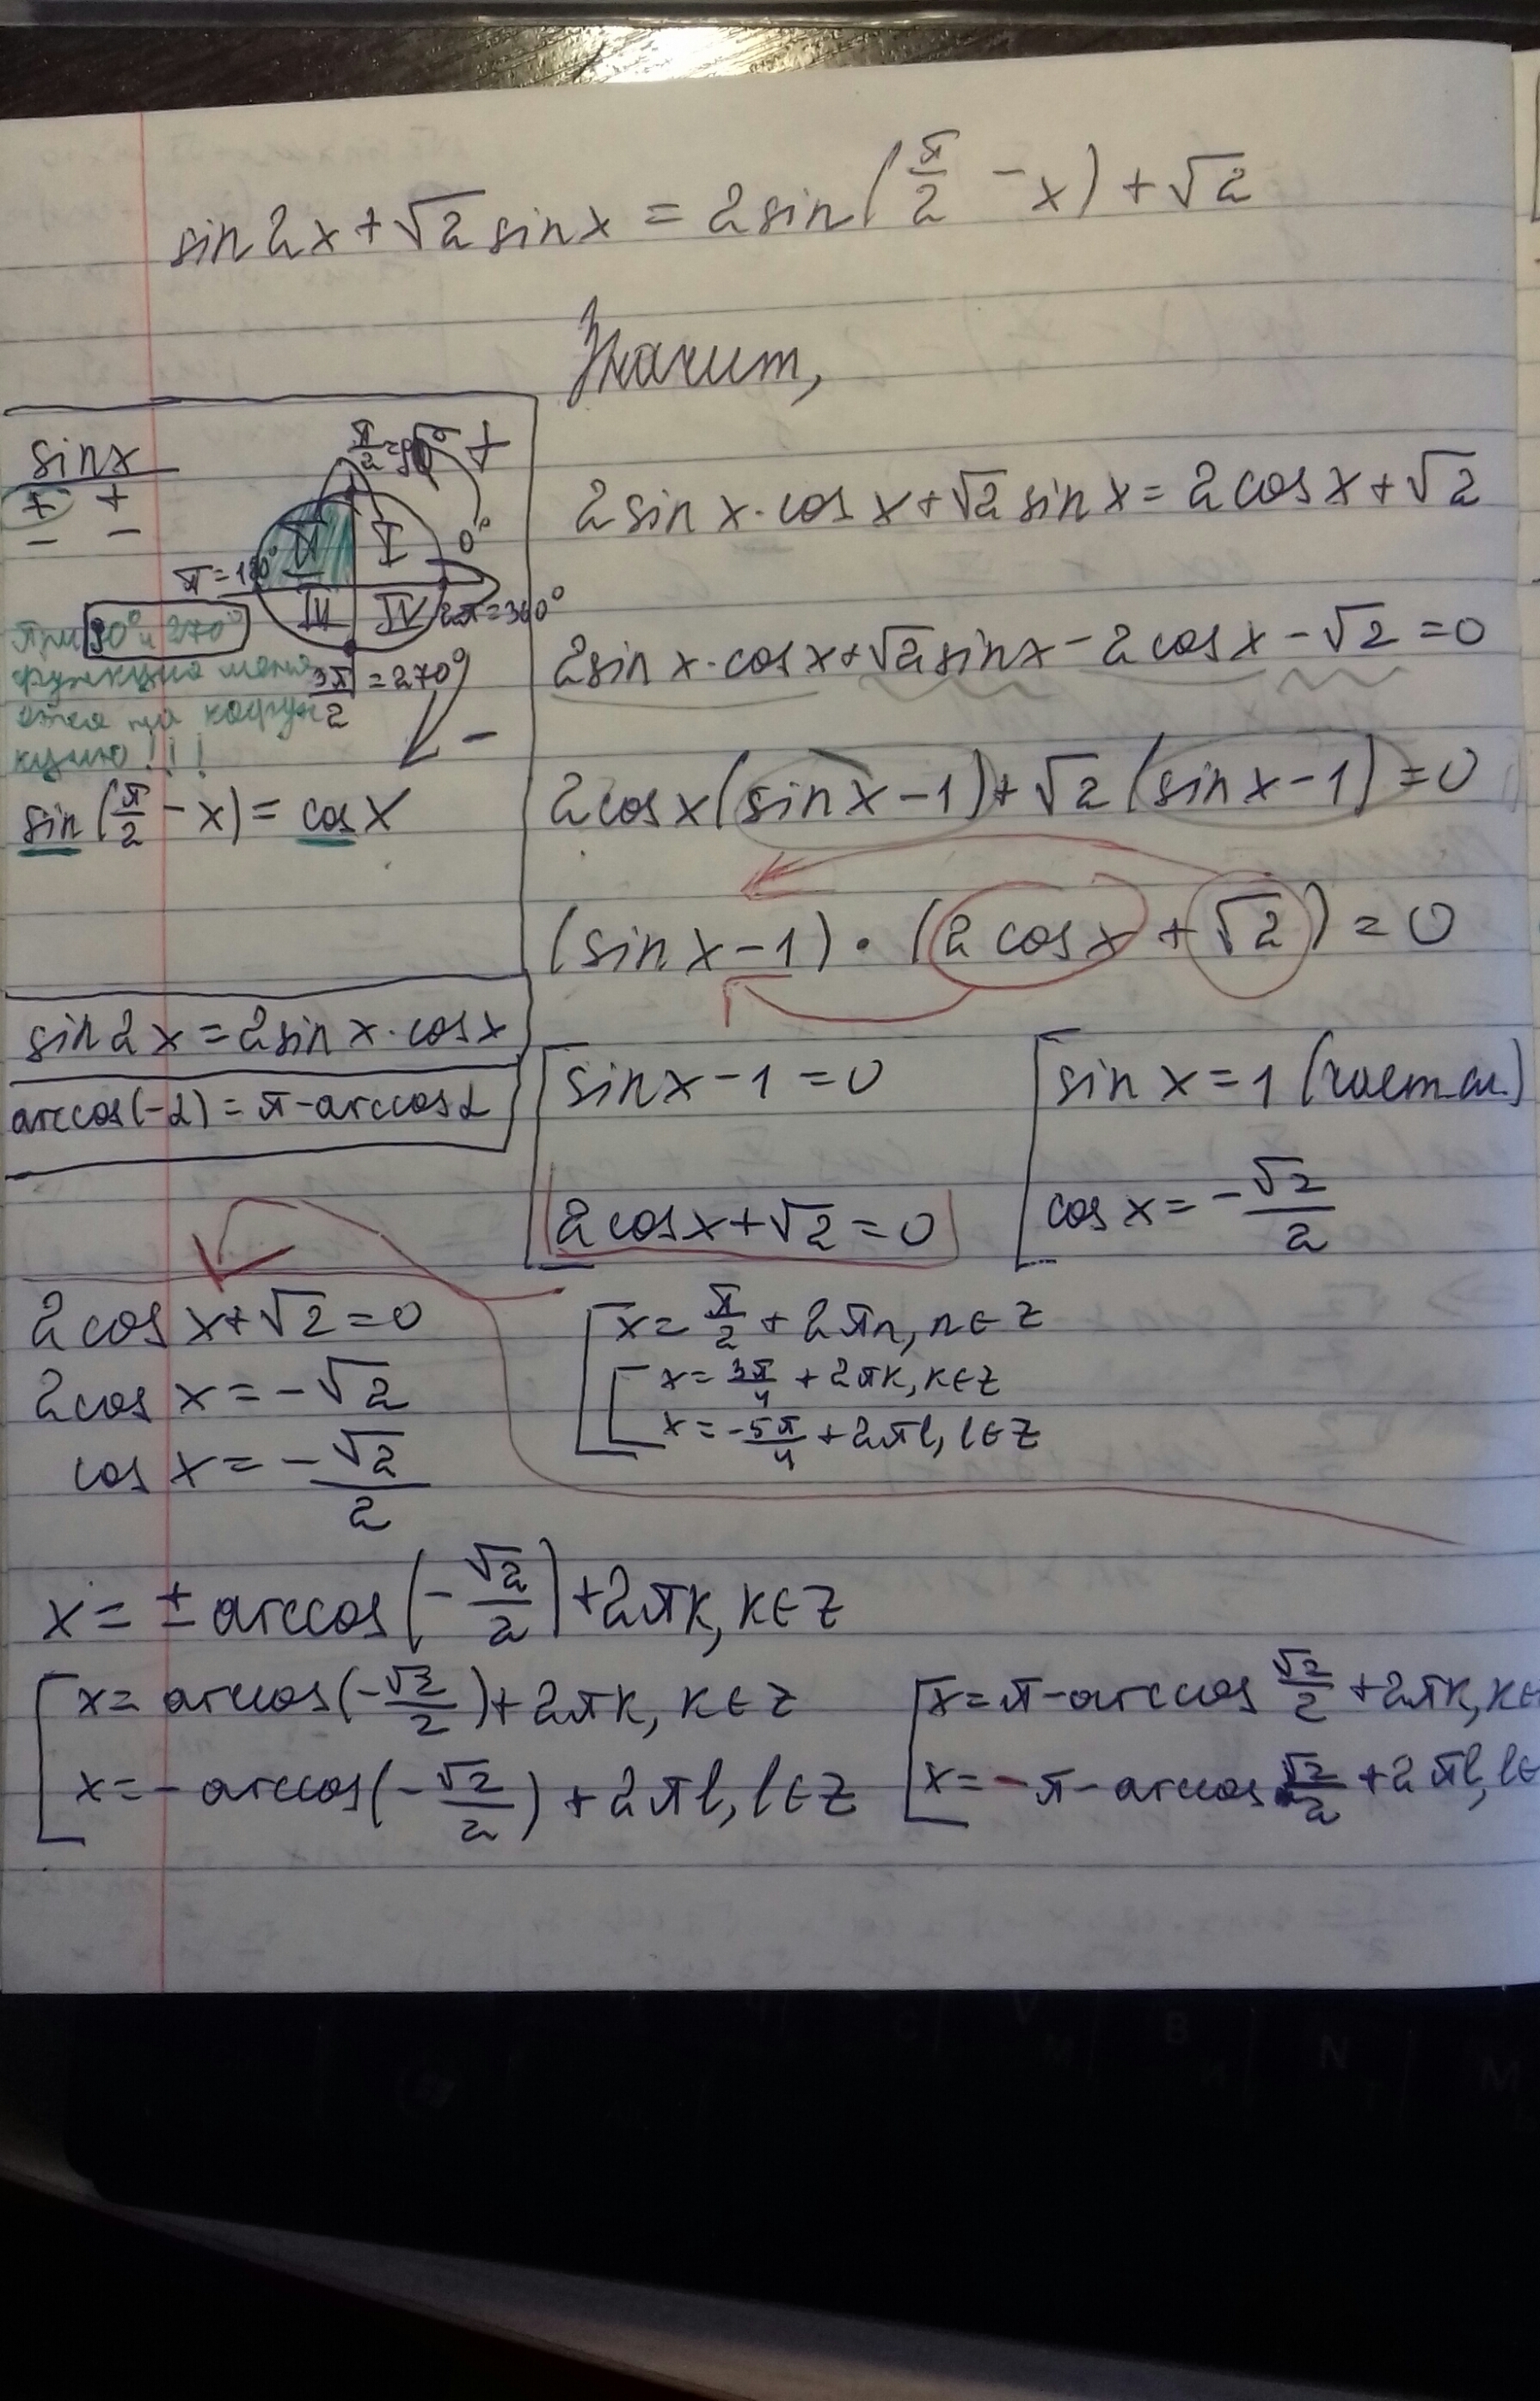 sin2x+√2sinx=2sin(π/2-x)+√2
Значит,
sinx
+ +
- -
π/2=90° +
II I 0°
π=180°
III IV 2π=360°
3π/2=270°
-
При 90° и 270°
функция меня
ется на кофун
кцию!!!
sin(π/2-x)=cosx
sin2x=2sinx·cosx
arccos(-α)=π-arccosα
2sinx·cosx+√2sinx=2cosx+√2
2sinx·cosx+√2sinx-2cosx-√2=0
2cosx(sinx-1)+√2(sinx-1)=0
(sinx-1)·(2cosx+√2)=0
[sinx-1=0
2cosx+√2=0
[sinx=1 (част.сл.)
cosx=-√2/2
[x=π/2+2πn, n∈Z
[x=3π/4+2πk, k∈Z
x=-5π/4+2πl, l∈Z
2cosx+√2=0
2cosx=-√2
cosx=-√2/2
x=±arccos(-√2/2)+2πk, k∈Z
[x=arccos(-√2/2)+2πk, k∈Z
x=-arccos(-√2/2)+2πl, l∈Z
[x=π-arccos√2/2+2πk, k∈
x=-π-arccos√2/2+2πl, l∈